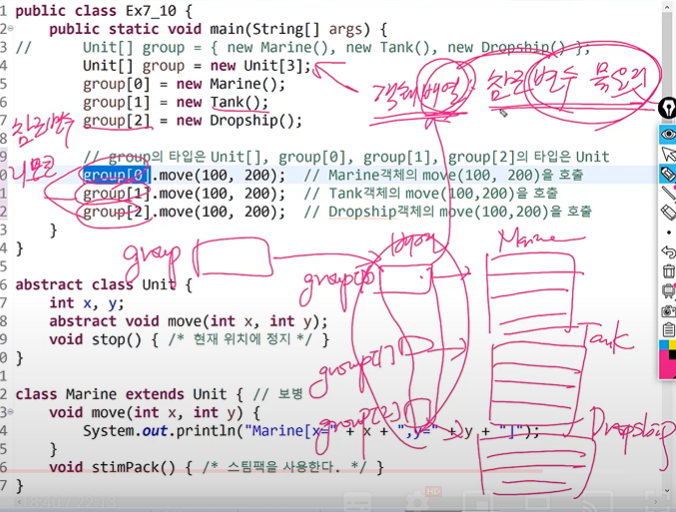 1 public class Ex7_10 {
2 public static void main(String[] args) {
3 // Unit[] group = { new Marine(), new Tank(), new Dropship() };
4 Unit[] group = new Unit[3];
5 group[0] = new Marine();
6 group[1] = new Tank();
7 group[2] = new Dropship();
8
9 // group의 타입은 Unit[], group[0], group[1], group[2]의 타입은 Unit
0 group[0].move(100, 200); // Marine객체의 move(100, 200)을 호출
1 group[1].move(100, 200); // Tank객체의 move(100,200)을 호출
2 group[2].move(100, 200); // Dropship객체의 move(100,200)을 호출
3 }
4 }
5
6 abstract class Unit {
7 int x, y;
8 abstract void move(int x, int y);
9 void stop() { /* 현재 위치에 정지 */ }
0 }
1
2 class Marine extends Unit { // 보병
3 void move(int x, int y) {
4 System.out.println("Marine[x=" + x + ",y=" + y + "]");
5 }
6 void stimPack() { /* 스팀팩을 사용한다. */ }
7 }
객체배열: 참조변수 묶으리
참조변수
리모콘
group
배열
group[0]
group[1]
group[2]
Marine
Tank
Dropship
HD